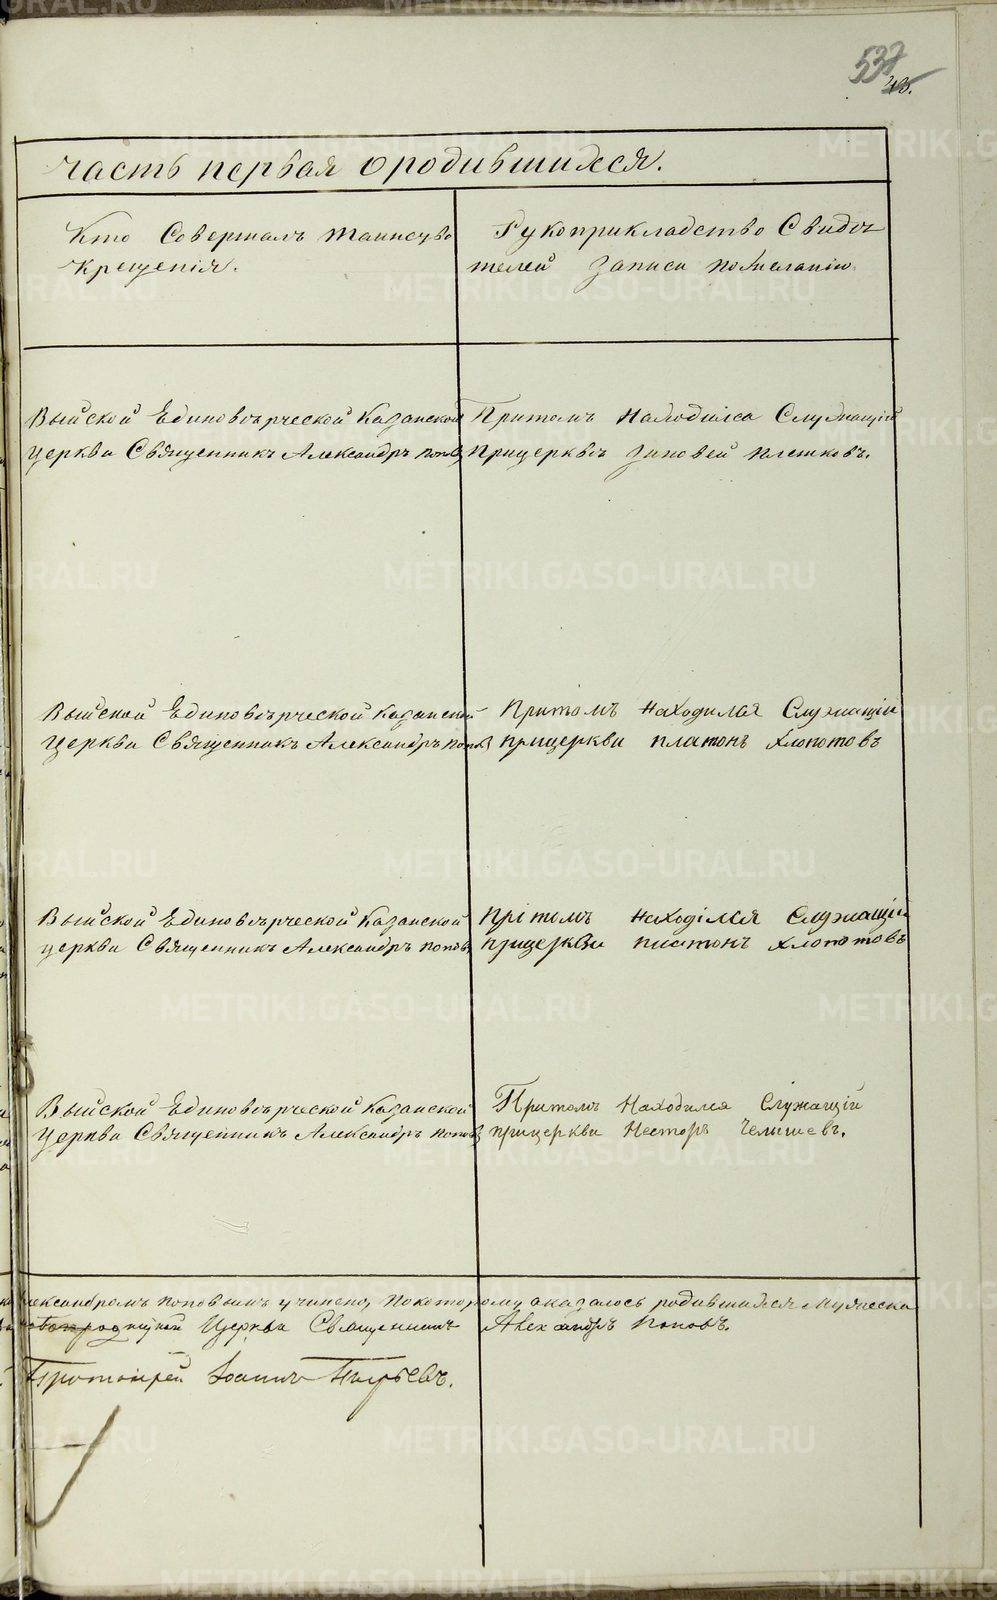 537
часть первая о родившихся.
Кто Совершалъ таинство
Крещенія.
Рукоприкладство Свидѣ
телей записи по желанію.
Выйской Единовѣрческой Казанской
Церкви Священникъ Александръ попов
Притомъ находился Служащій
Прицерквѣ Зиновей Плешковъ.
Выйской Единовѣрческой Казанской
Церкви Священникъ Александръ попов
Притомъ находился Служащій
прицеркви платонъ Хлопотовъ
Выйской Единовѣрческой Казанской
церкви Священникъ Александръ попов
Прітомъ находілся Служащій
прицеркви платонъ хлопотовъ
Выйской Единовѣрческой Казанской
Церкви Священникъ Александръ попов
Притомъ Находился Служащій
прицеркви Несторъ Челышевъ.
лександромъ поповымъ учинено, покоторому оказалось родившихся мужеска
Церкви Священникъ Александръ Поповъ.
Протоіерей Іоаннъ
METRIKI.GASO-URAL.RU